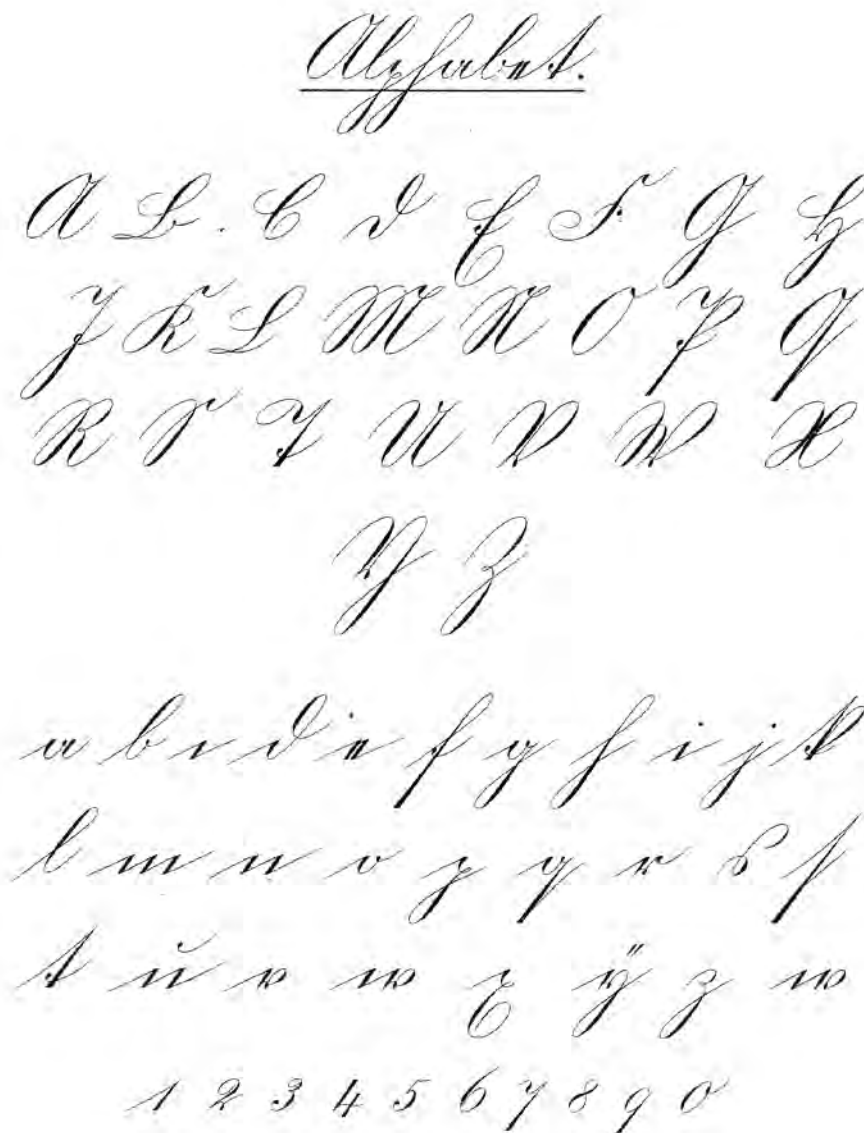 Alphabet.
A B. C D E F. G H
J K L M N O P Q
R S T U V W X
Y Z
a b c d e f g h i j k
l m n o p q r s ſ
t ŭ v w x ÿ z w
1 2 3 4 5 6 7 8 9 0